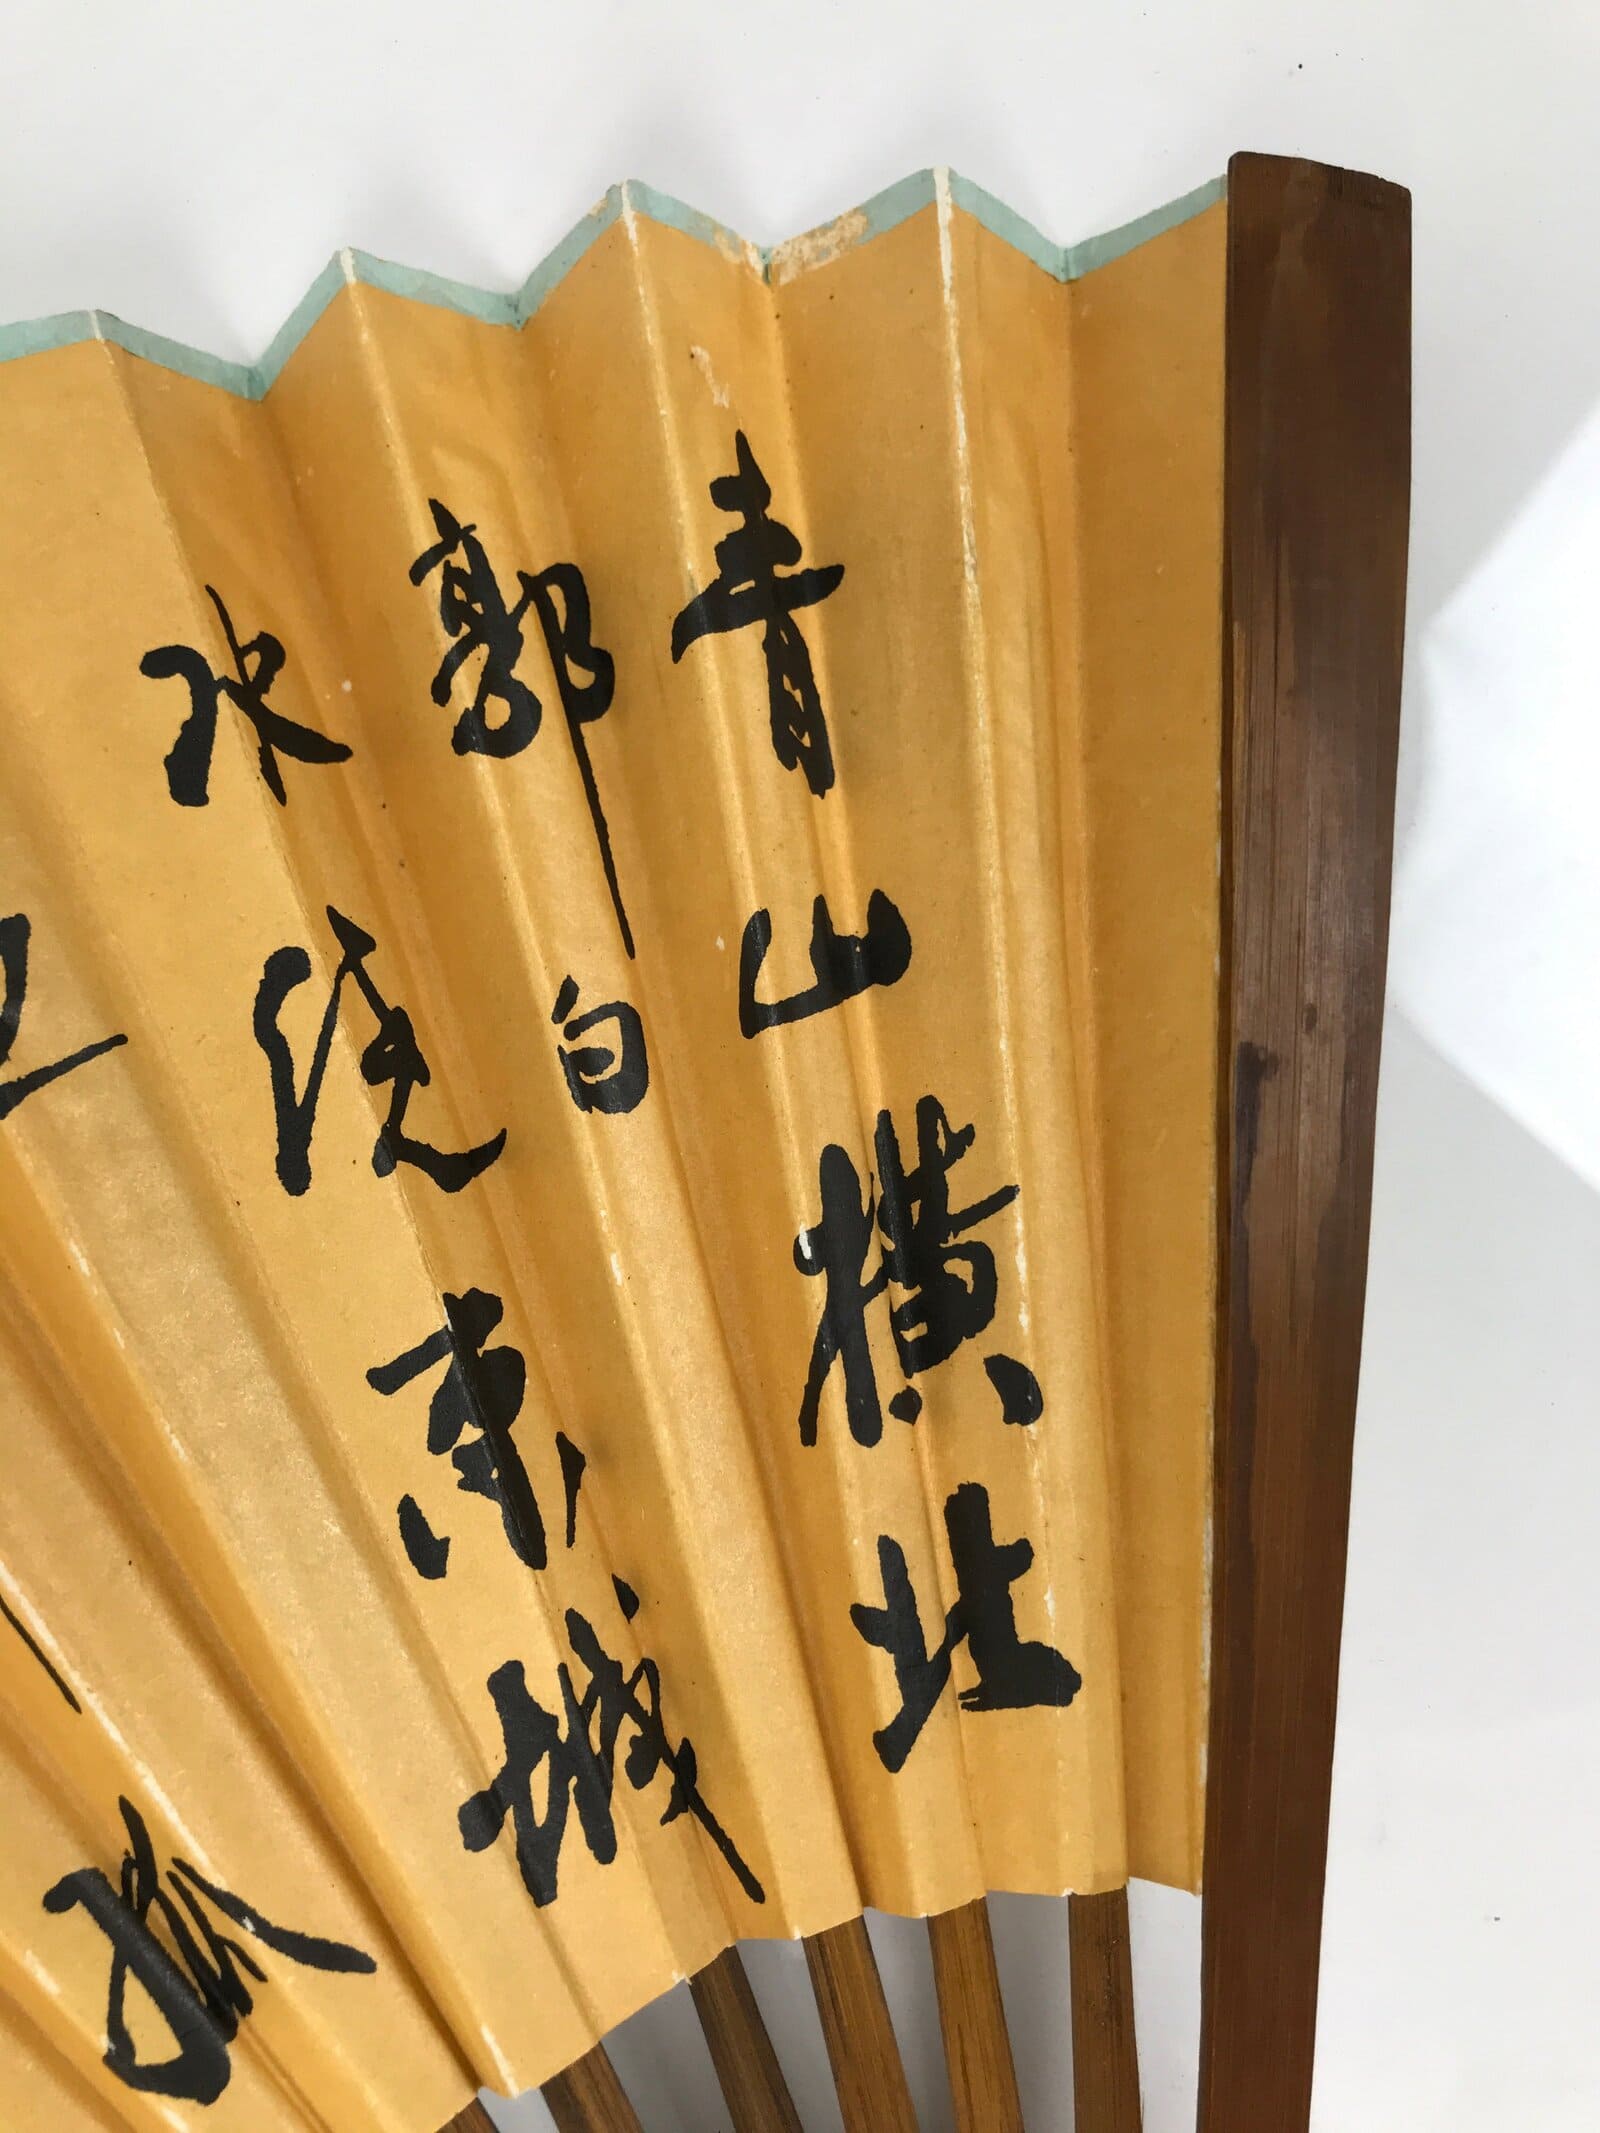 青山横北
郭白
水繞東城
孤